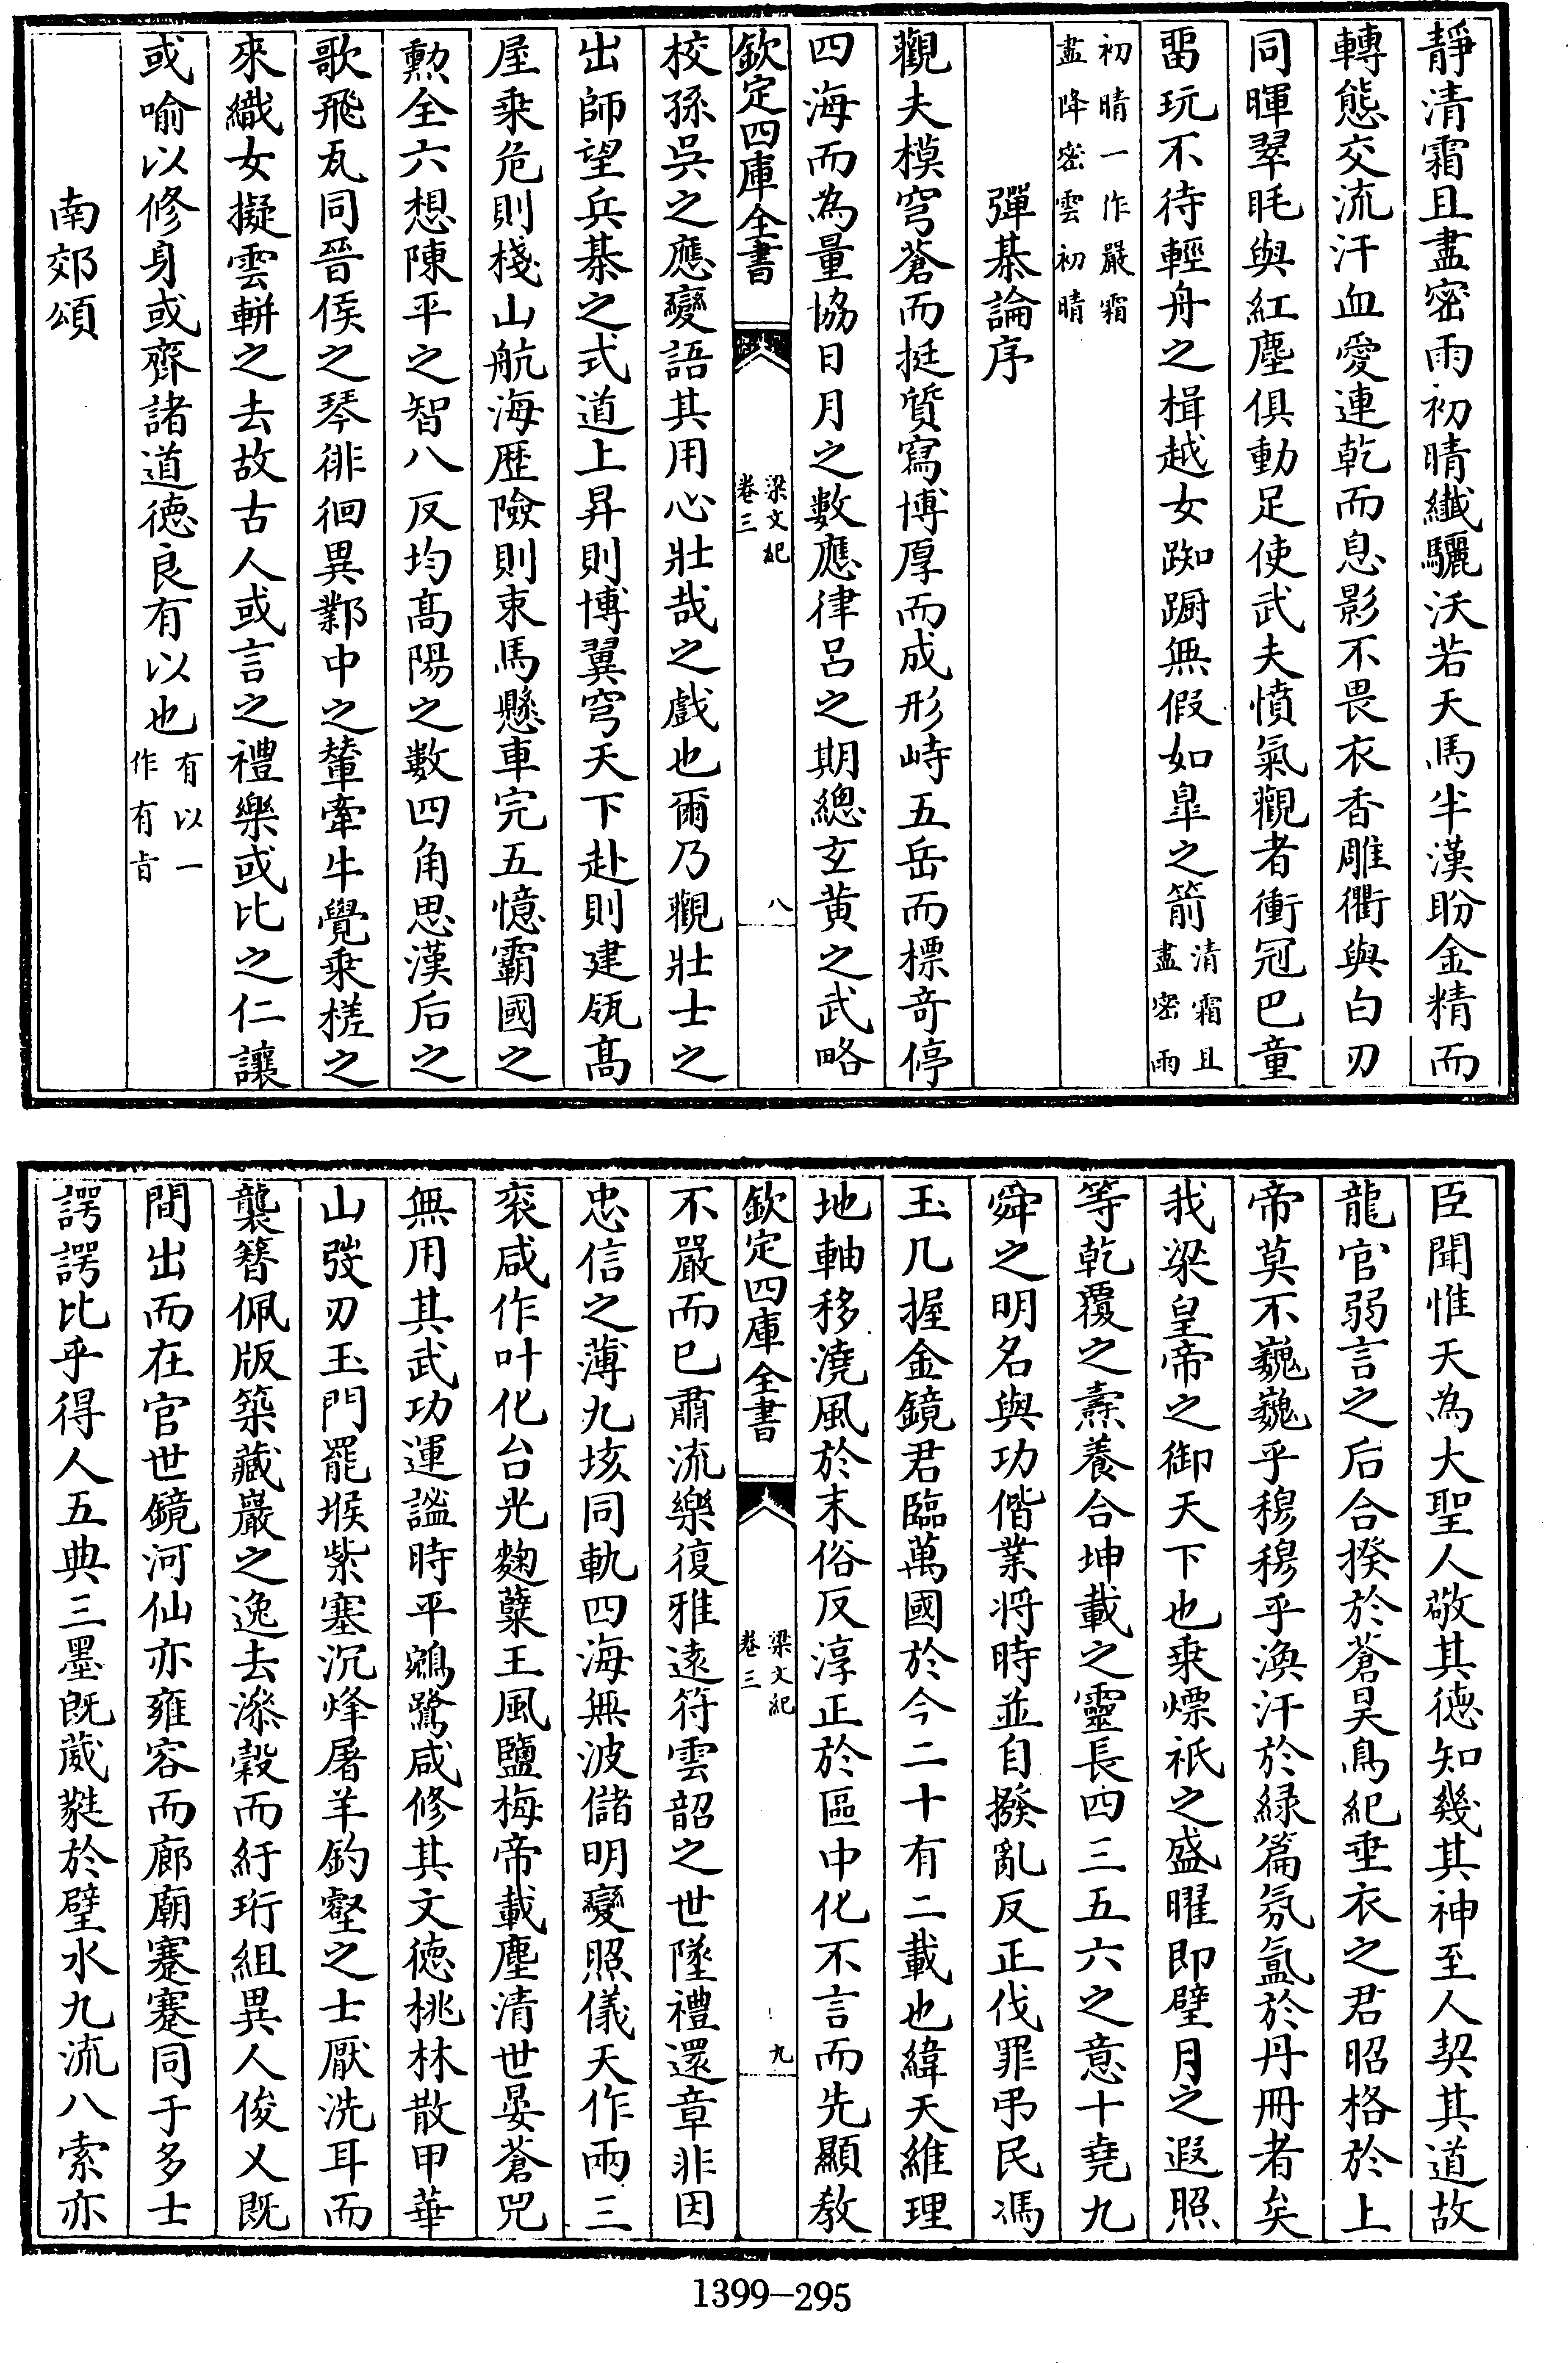 靜清霜且盡密雨初晴纖驪沃若天馬半漢盼金精而
轉態交流汗血愛連乾而息影不畏衣香雕衢與白刃
同暉翠眊與紅塵俱動足使武夫憤氣觀者衝冠巴童
畱玩不待輕舟之楫越女踟蹰無假如臯之箭清霜且
盡密雨
初晴一作嚴霜
盡降密雲初晴
彈棊論序
觀夫模穹蒼而挺質寫博厚而成形峙五岳而標奇停
四海而為量協日月之數應律呂之期總玄黃之武略
欽定四庫全書
梁文紀
卷三
八
校孫吳之應變語其用心壯哉之戲也爾乃觀壯士之
出師望兵棊之式道上昇則博翼穹天下赴則建瓴髙
屋乗危則棧山航海歴險則束馬懸車完五憶霸國之
勲全六想陳平之智八反均髙陽之數四角思漢后之
歌飛瓦同晉侯之琴徘徊異鄴中之輦牽牛覺乗槎之
來織女擬雲軿之去故古人或言之禮樂或比之仁讓
或喻以修身或齊諸道徳良有以也有以一
作有旨
南郊頌
臣聞惟天為大聖人敬其徳知幾其神至人契其道故
龍官弱言之后合揆於蒼昊鳥紀垂衣之君昭格於上
帝莫不巍巍乎穆穆乎渙汗於緑篇氛氲於丹冊者矣
我梁皇帝之御天下也乗熛祇之盛曜即璧月之遐照
等乾覆之燾養合坤載之靈長四三五六之意十堯九
舜之明名與功偕業将時並自撥亂反正伐罪弔民馮
玉几握金鏡君臨萬國於今二十有二載也緯天維理
地軸移澆風於末俗反淳正於區中化不言而先顯教
欽定四庫全書
梁文紀
卷三
九
不嚴而已肅流樂復雅逺符雲韶之世墜禮還章非因
忠信之薄九垓同軌四海無波儲明變照儀天作兩三
衮咸作叶化台光麴糵王風鹽梅帝載塵清世晏蒼兕
無用其武功運謐時平鵷鷺咸修其文徳桃林散甲華
山弢刃玉門罷堠紫塞沉烽屠羊釣壑之士厭洗耳而
襲簪佩版築藏巖之逸去滌穀而紆珩組異人俊乂既
間出而在官世鏡河仙亦雍容而廊廟蹇蹇同于多士
諤諤比乎得人五典三墨既葳蕤於璧水九流八索亦
1399–295